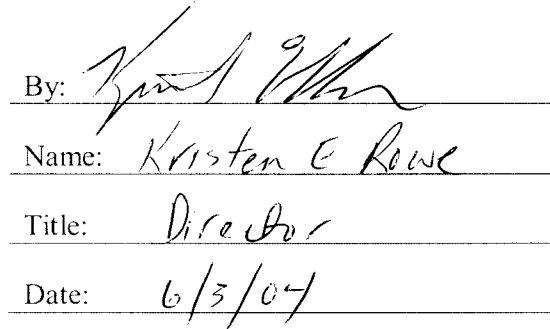 By:
Name: Kristen E Rowe
Title: Director
Date: 6/3/04